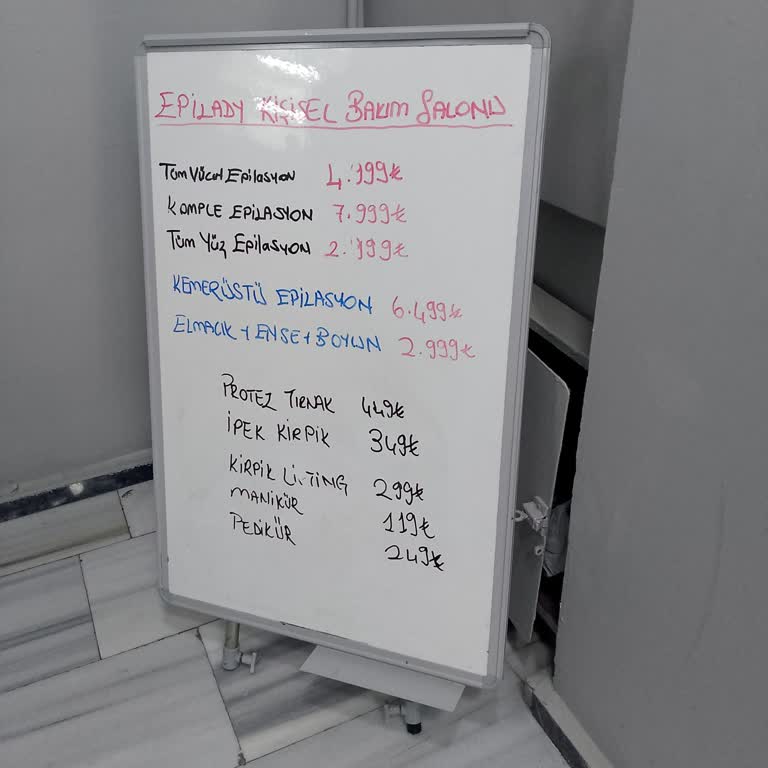 EPILADY KİŞİSEL BAKIM SALONU
Tüm Vücut Epilasyon 4.199₺
KOMPLE EPİLASYON 7.999₺
Tüm Yüz Epilasyon 2.199₺
KEMERÜSTÜ EPİLASYON 6.499₺
ELMACIK + ENSE + BOYUN 2.999₺
PROTEZ TIRNAK 449₺
İPEK KİRPİK 349₺
KİRPİK LİFTİNG 299₺
MANİKÜR 119₺
PEDİKÜR 249₺